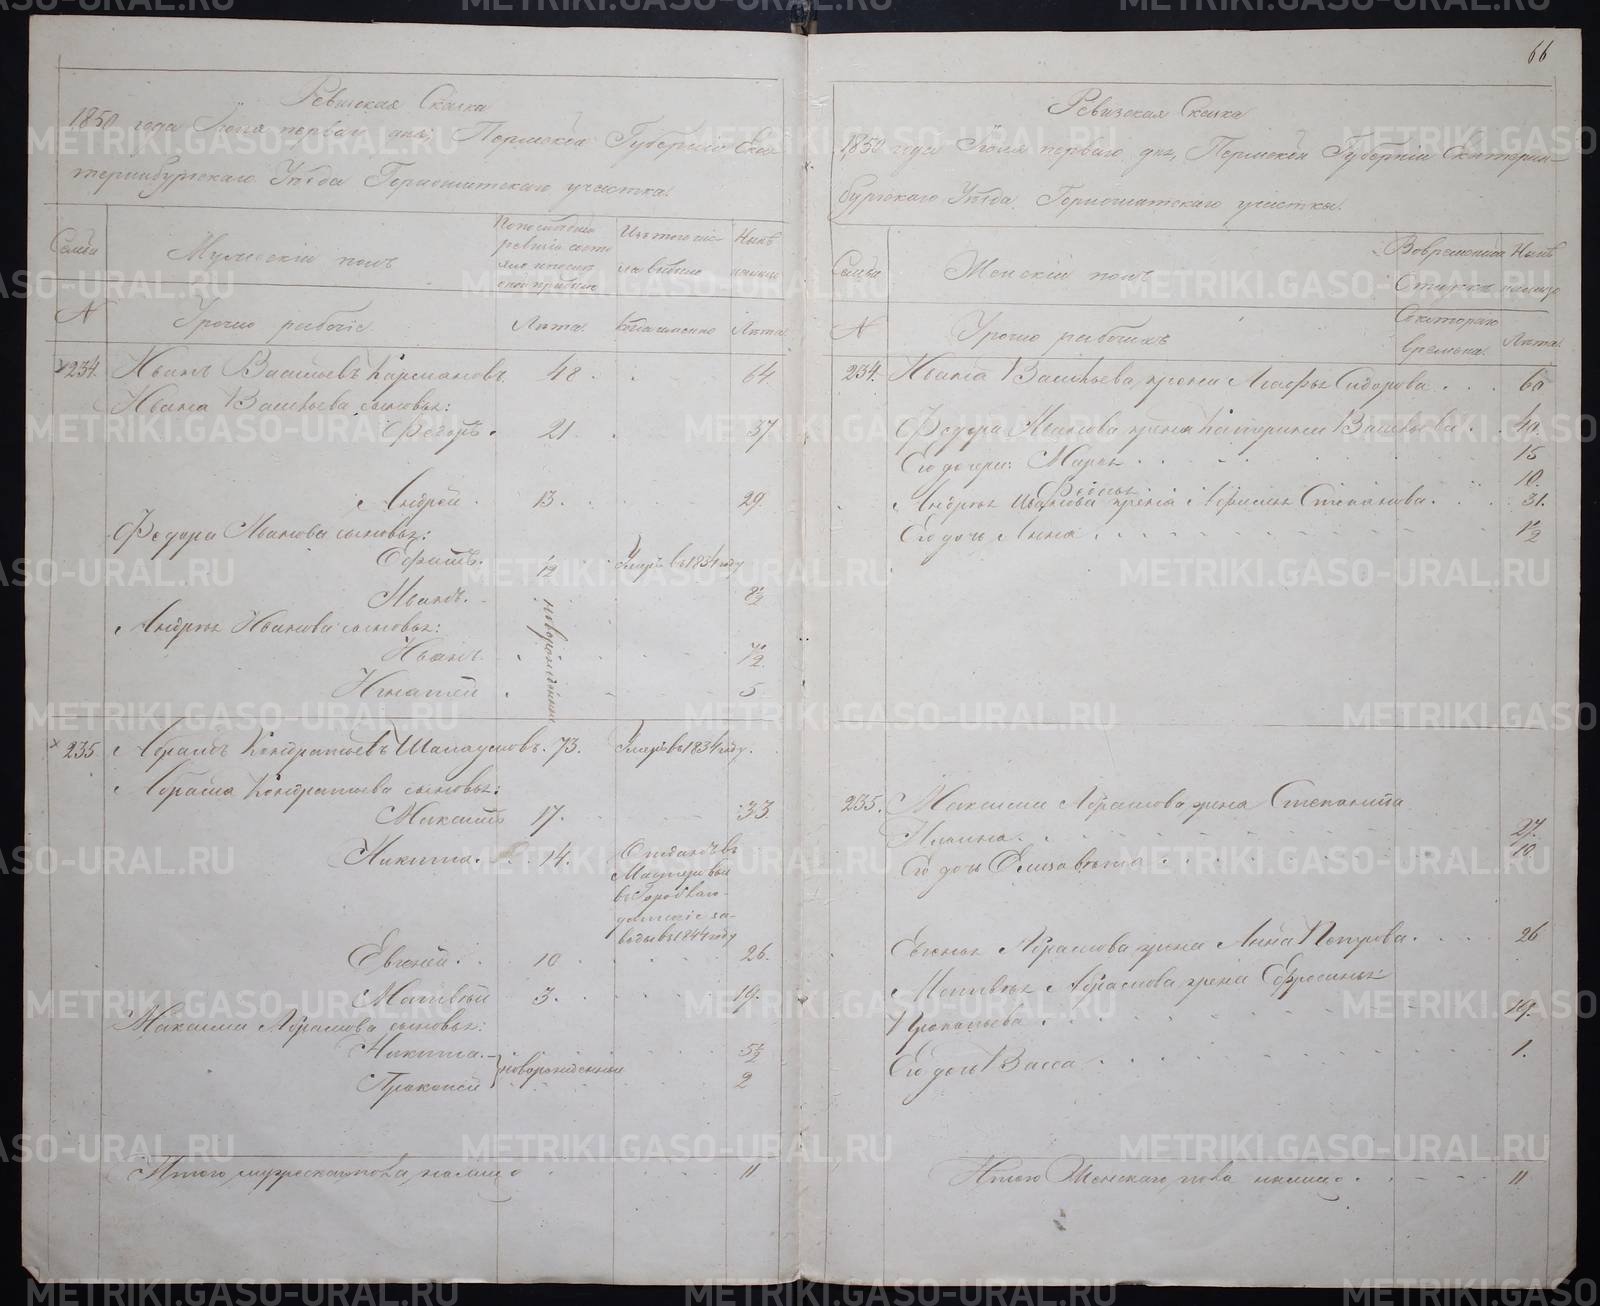 66
Ревизская Сказка
1850 года Іюня первого дня, Пермской Губерніи Ека-
теринбургскаго Уѣзда Горнощитскаго участка.
Семьи
Мужескій полъ
По последней
ревизіи состо
яло и после
оной прибыло
Изъ того чис-
ла выбыло
Нынѣ
налицо
№
Урочно рабочіе
Лѣта.
Когда именно
Лѣта
234. Иванъ Васильевъ Кармановъ. 48. 64.
Ивана Васильева сыновья:
Федоръ. 21. 37
Андрей. 13. 29.
Федора Иванова сыновья:
Ефимъ. 1/2 Умеръ въ 1834 году
Иванъ. 8 1/2
Андрея Иванова сыновья:
Иванъ. 7 1/2
Игнатей 5
новорожденные
235 Абрамъ Кондратьевъ 73. Умеръ въ 1834 году.
Абрама Кондратьева сыновья:
Максимъ 17. 33.
Никита. 14. Отданъ въ
Мастеровые
въ 1844 году
Евгений. 10 26.
Матвѣй 3. 19.
Максима Абрамова сыновья:
Никита. 5 1/2
Прокопей 2
новорожденные
Итого мужеска пола налицо 11
Ревизская Сказка
1850 года Іюня перваго дня, Пермской Губерніи Екатерин-
бургскаго Уѣзда Горнощитскаго участка.
Семьи
Женскій полъ
Во временной
Отлучкѣ
Нынѣ
налицо
№
Урочно рабочихъ
Съ котораго
времени.
Лѣта.
234. Ивана Васильева жена Агафья Сидорова. 60
Федора Иванова жена Катерина Васильева. 40.
Его дочери: Марья. 15
10.
Андрея Иванова жена Степанова. 31.
Его дочь Анна. 1/2
235. Максима Абрамова жена Степанида
Ильина. 27.
Его дочь Елизавѣта 10.
Евгенья Абрамова жена Анна Петрова. 26
Матвѣя Абрамова жена Ефросинья
Прокопьева. 19.
Его дочь Васса 1.
Итого Женскаго пола налицо. 11
METRIKI.GASO-URAL.RU